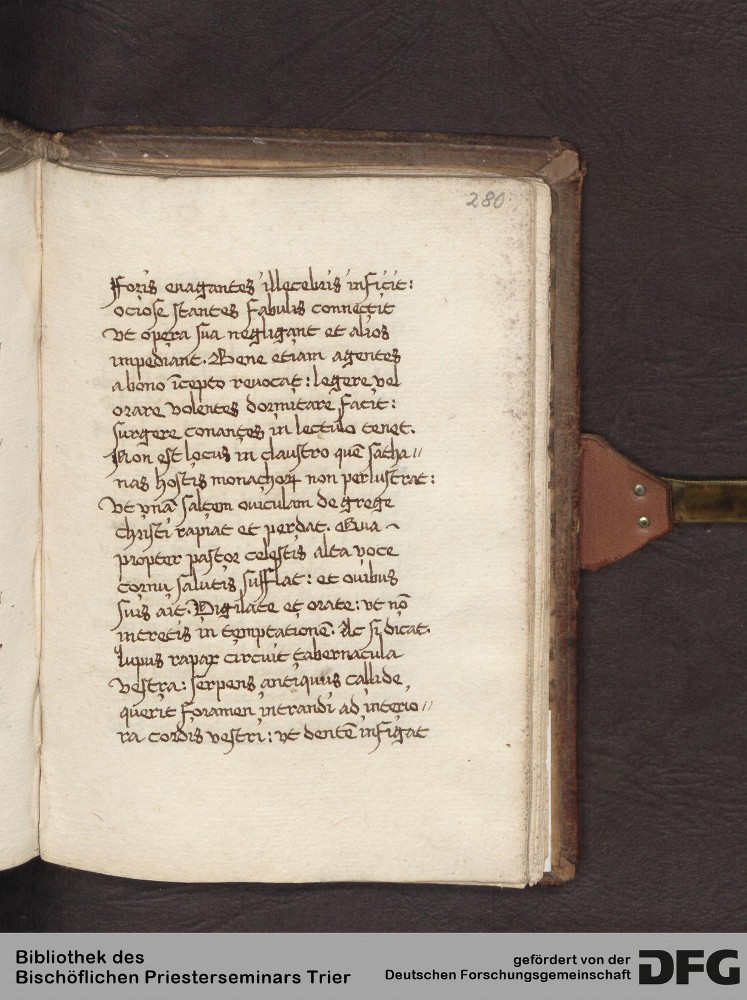 280
Foris euagantes illecebris inficit:
ociose stantes fabulis connectit
vt opera sua negligant et alios
impediant. Bene etiam agentes
a bono īcepto reuocat: legere vel
orare volentes dormitare facit:
surgere conantes in lectulo tenet.
Non est locus in claustro quē satha//
nas hostis monachoꝝ non perlustrat:
Vt vnā saltem ouiculam de grege
christi rapiat et perdat. Qua~
propter pastor celestis alta voce
cornu salutis sufflat: et ouibus
suis ait. Vigilate et orate: vt nō
intretis in temptationē. Ac si dicat.
lupus rapax circuit tabernacula
vestra: serpens antiquus callide
querit foramen intrandi ad interio//
ra cordis vestri: vt dentē infigat
Bibliothek des
Bischöflichen Priesterseminars Trier
gefördert von der
Deutschen Forschungsgemeinschaft
DFG